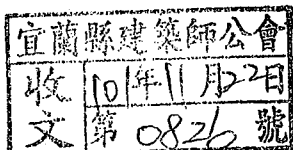 宜蘭縣建築師公會
收文
101年11月22日
第0826號